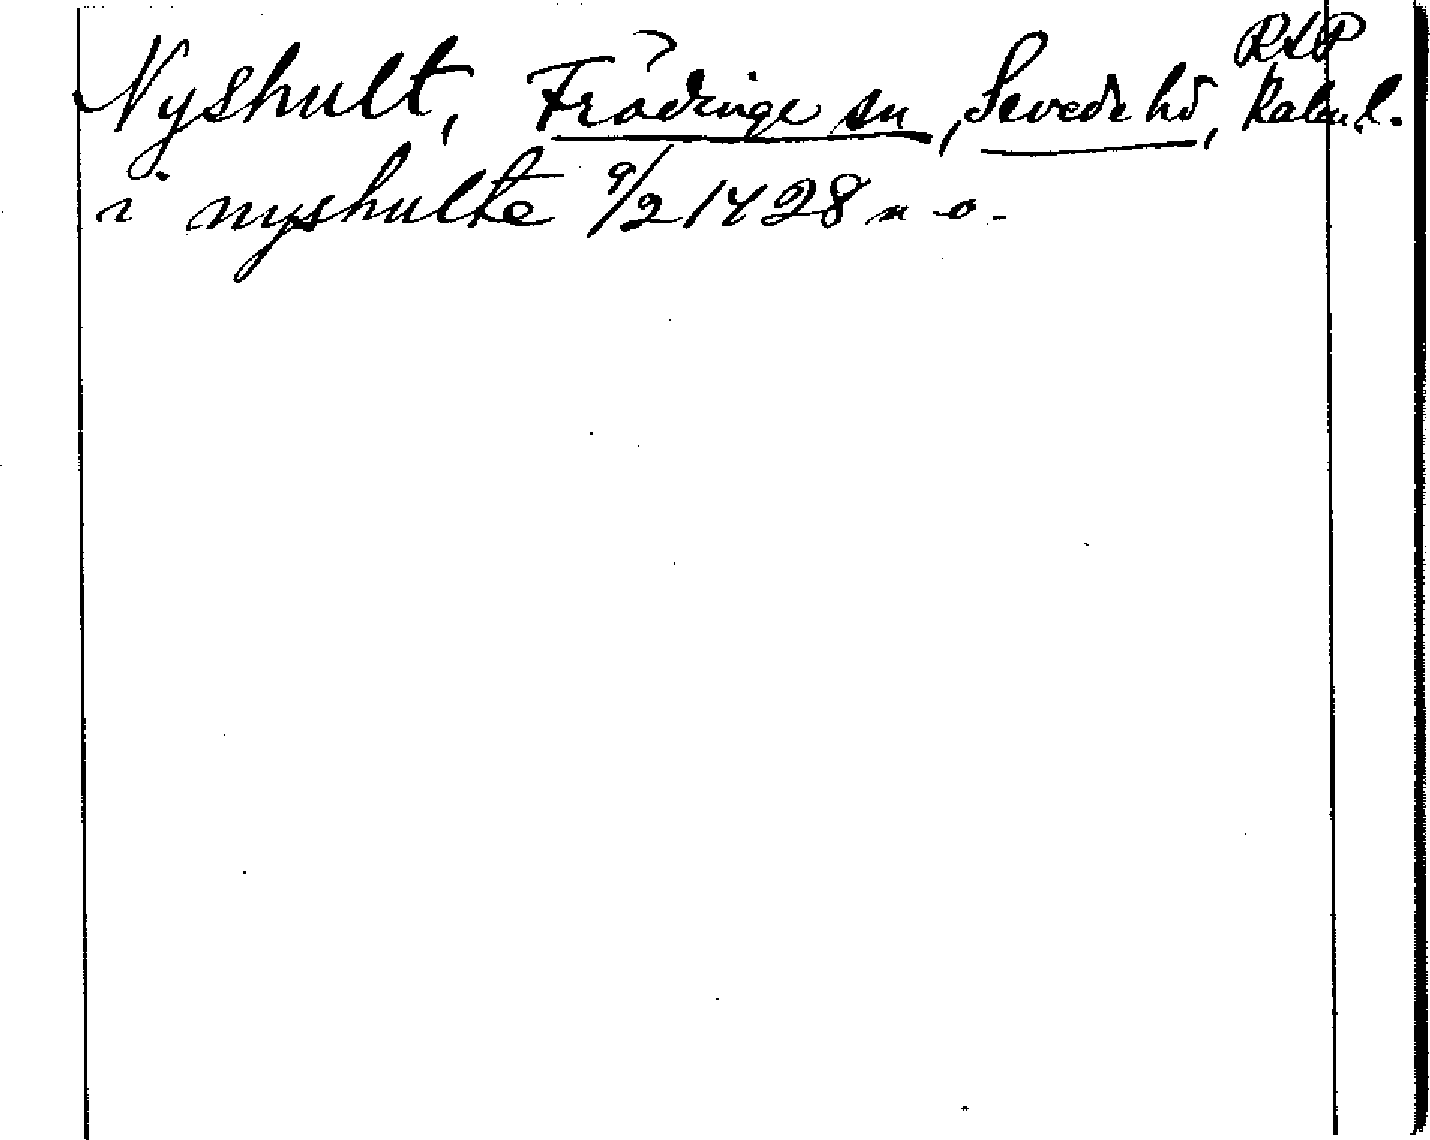 RAP
Nyshult, Frödinge sn, Sevede hd, Kalm l.
i nyshulte 9/2 1428 n -o-